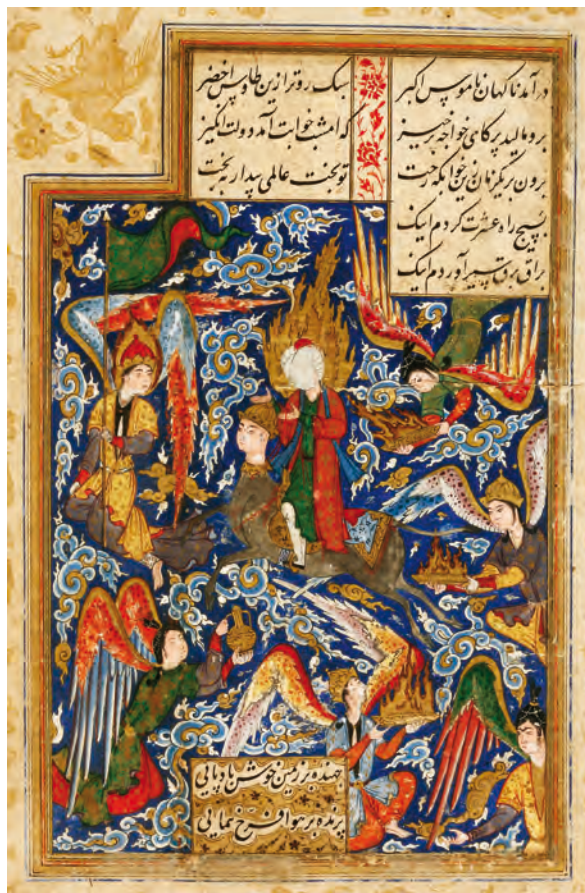 درآمد ناگهان ناموس اکبر سبک روتر ازین طاوس اخضر
برو مالید پر کای خواجه برخیز که امشب خوابت آمد دولت انگیز
برون بر یک زمان زین خوابگه رخت تو بخت عالمی بیدار به بخت
بسیج راه عرشت کردم اینک
براق برق سیر آوردم اینک
جهنده بر زمین خوش بادپایی
پرنده بر هوا فرخ همایی